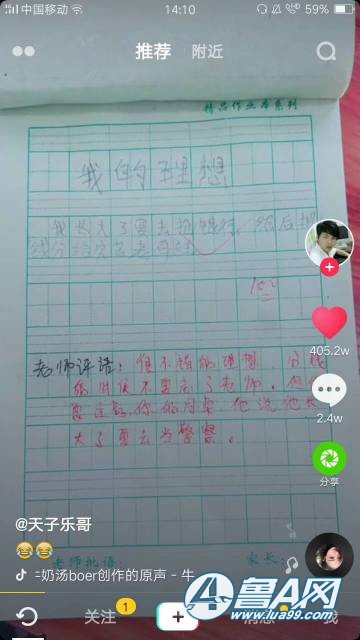 中国移动 14:10 59%
推荐 附近
精品作业本系列
我的理想
我长大了要去抢银行，然后把
钱分给穷苦老百姓
老师评语：很不错的理想，分钱
的时候不要忘了老师。但
要注意你的同桌，他说他长
大了要去当警察。
405.2w
2.4w
分享
@天子乐哥
奶汤boer创作的原声 - 牛
老师批语： 家长：
关注 1 我
鲁A网
www.lua99.com